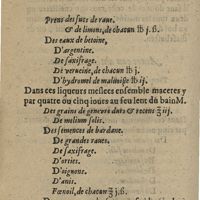 Prens des sucs de raue.
& de limons, de chacun ℔ j.ß.
Des eaux de betoine,
D'argentine.
De saxifrage.
De verueine, de chacun ℔ j.
D'hydromel de maluoisie ℔ ij.
Dans ces liqueurs meslees ensemble macerez y
par quatre ou cinq iours au feu lent du bain M.
Des grains de geneure durs & recents ℥ iij.
De melium solis.
Des semences de bardane.
De grandes raues.
De saxifrage.
D'orties.
D'oignons.
D'anis.
Fœnoil, de chacun ℥ j.ß.